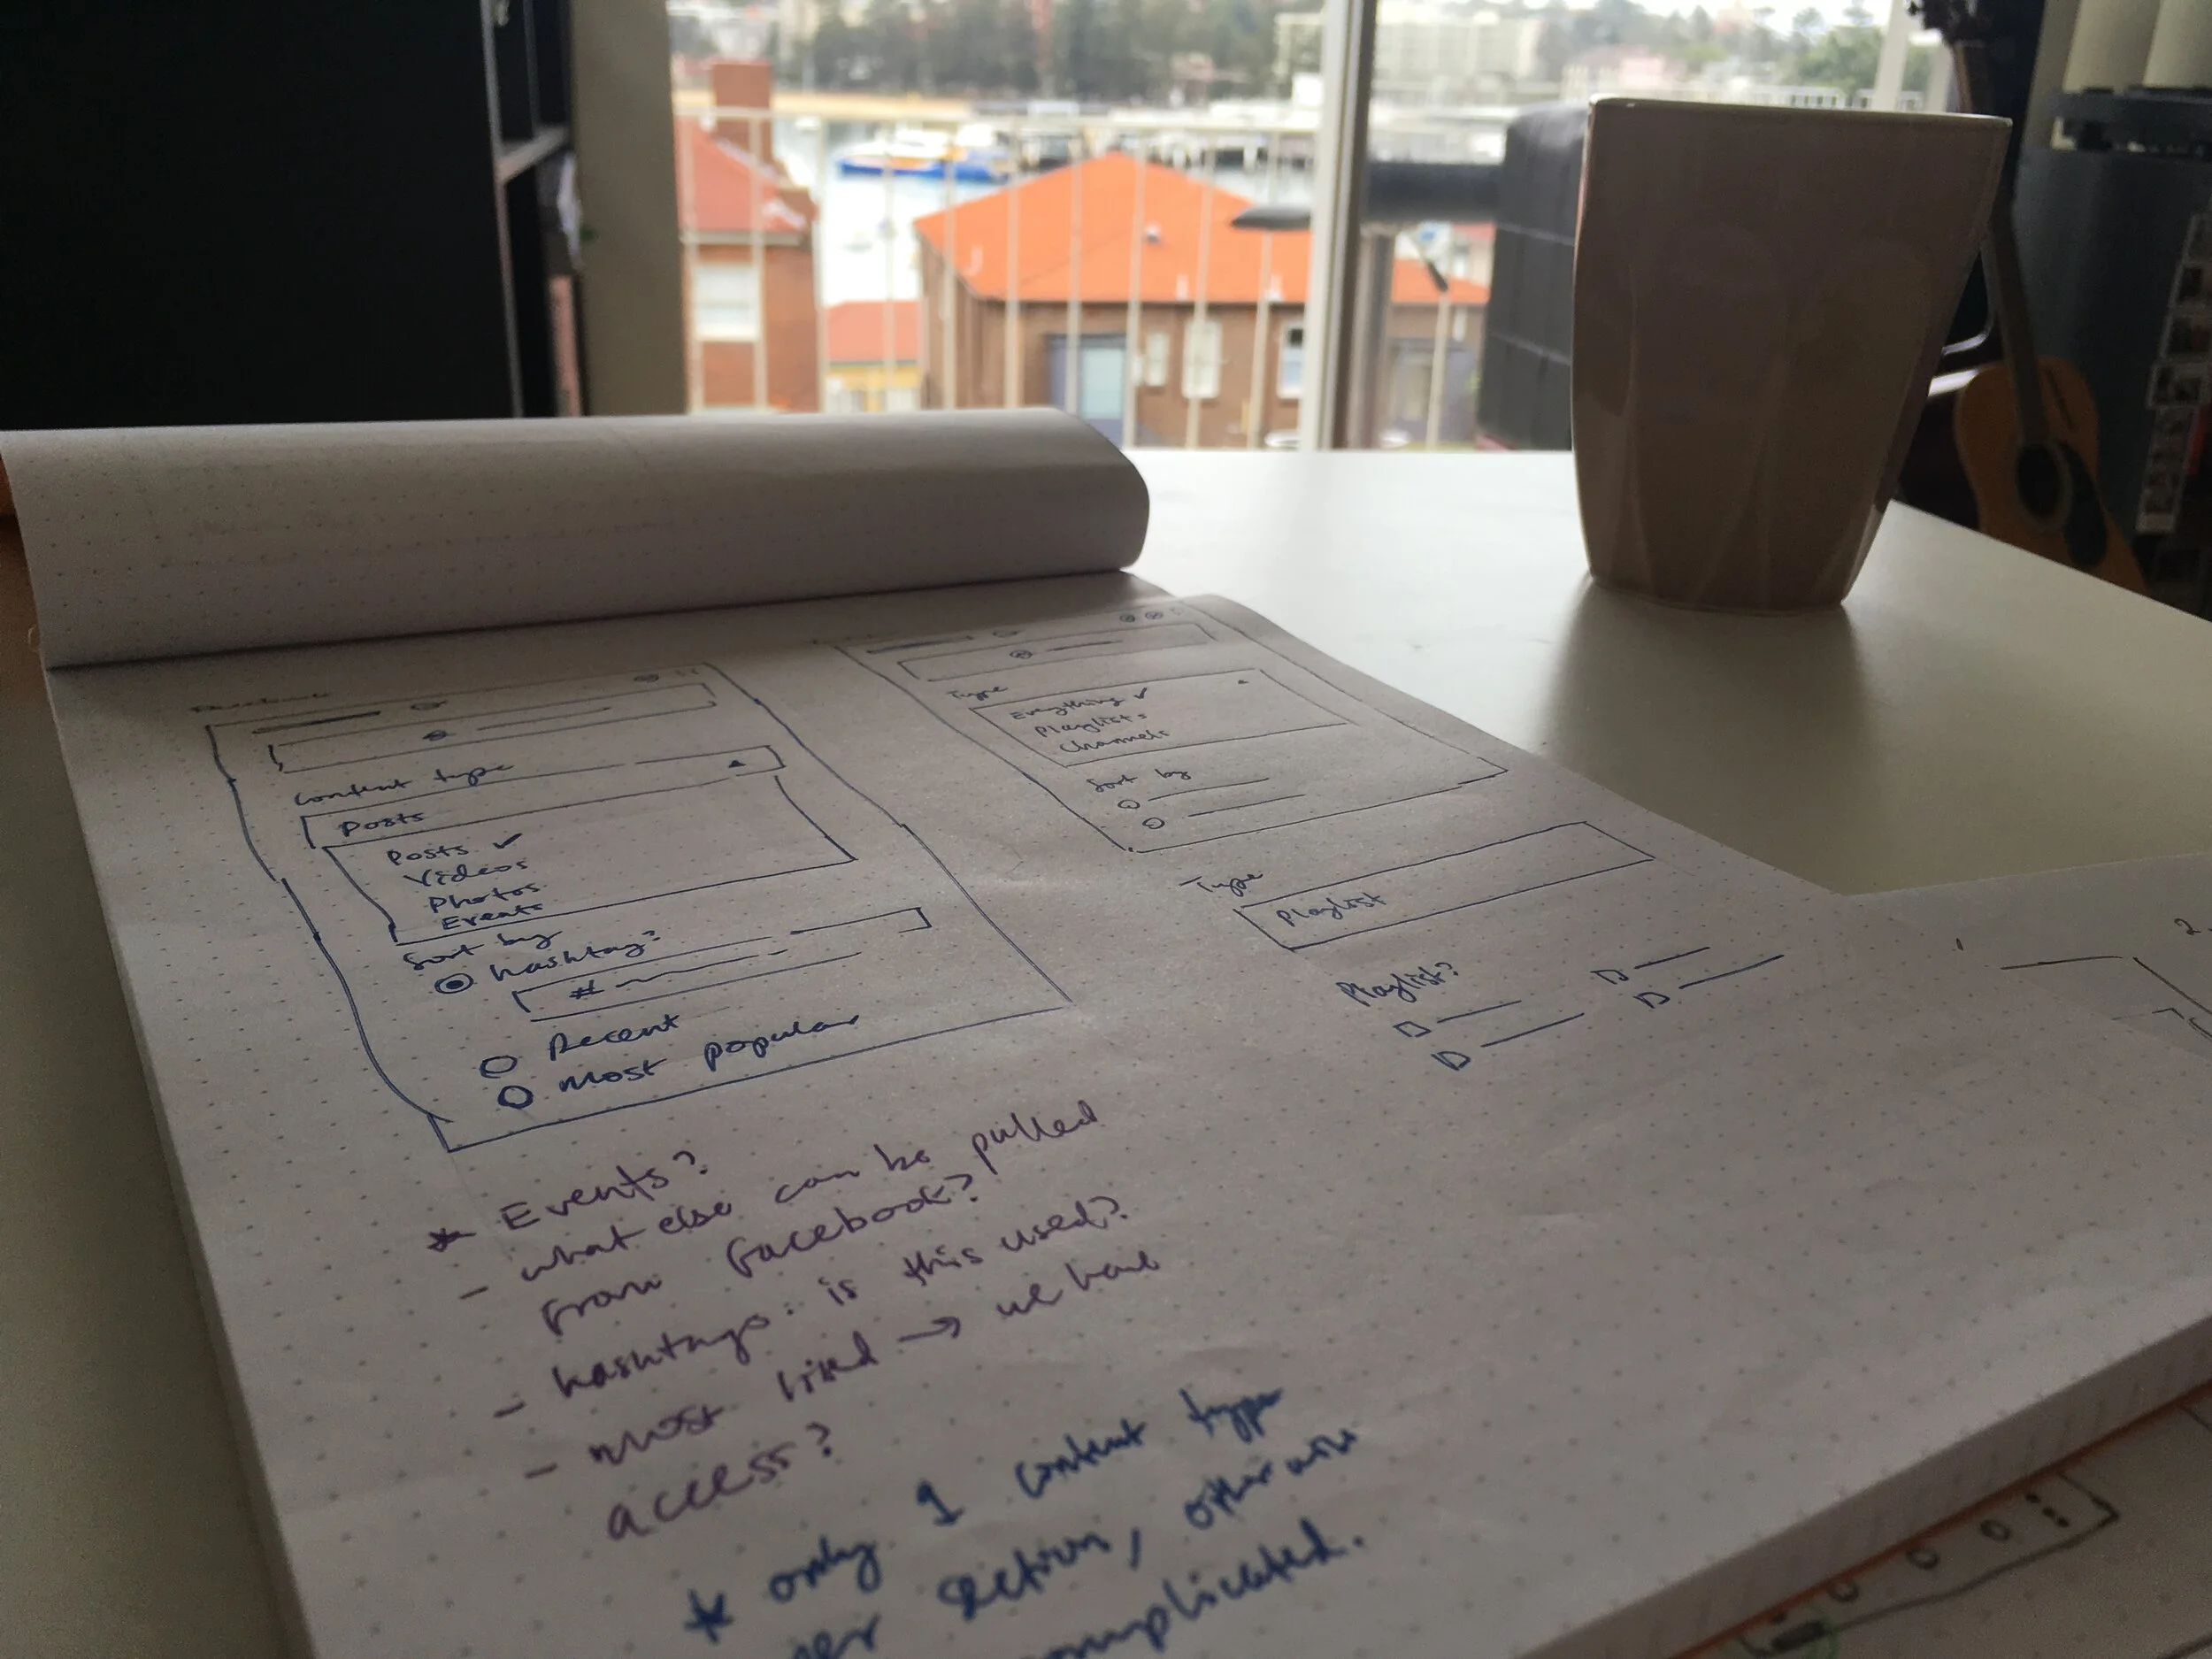 Facebook
Content type
Posts
Posts ✓
Videos
Photos
Events
Sort by
hashtag?
#
Recent
most popular
Type
Everything ✓
Playlists
Channels
Sort by
Type
Playlist
Playlist?
* Events?
- what else can be pulled
from facebook?
- hashtags: is this used?
- most liked → we have
access?
* only 1 content type
per section, otherwise
complicated.
1
2.